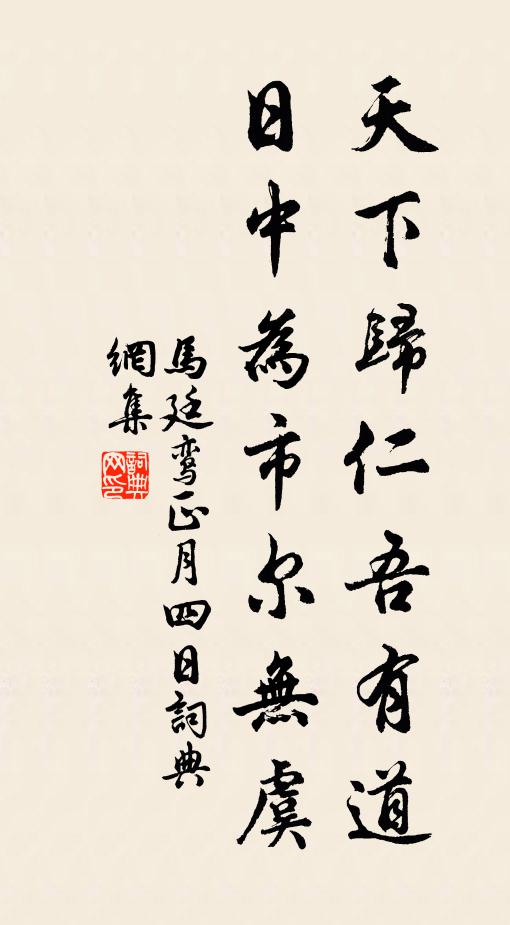 天下歸仁吾有道
日中為市尔無虞
馬廷鸾正月四日詞典
網集
詞典
网印